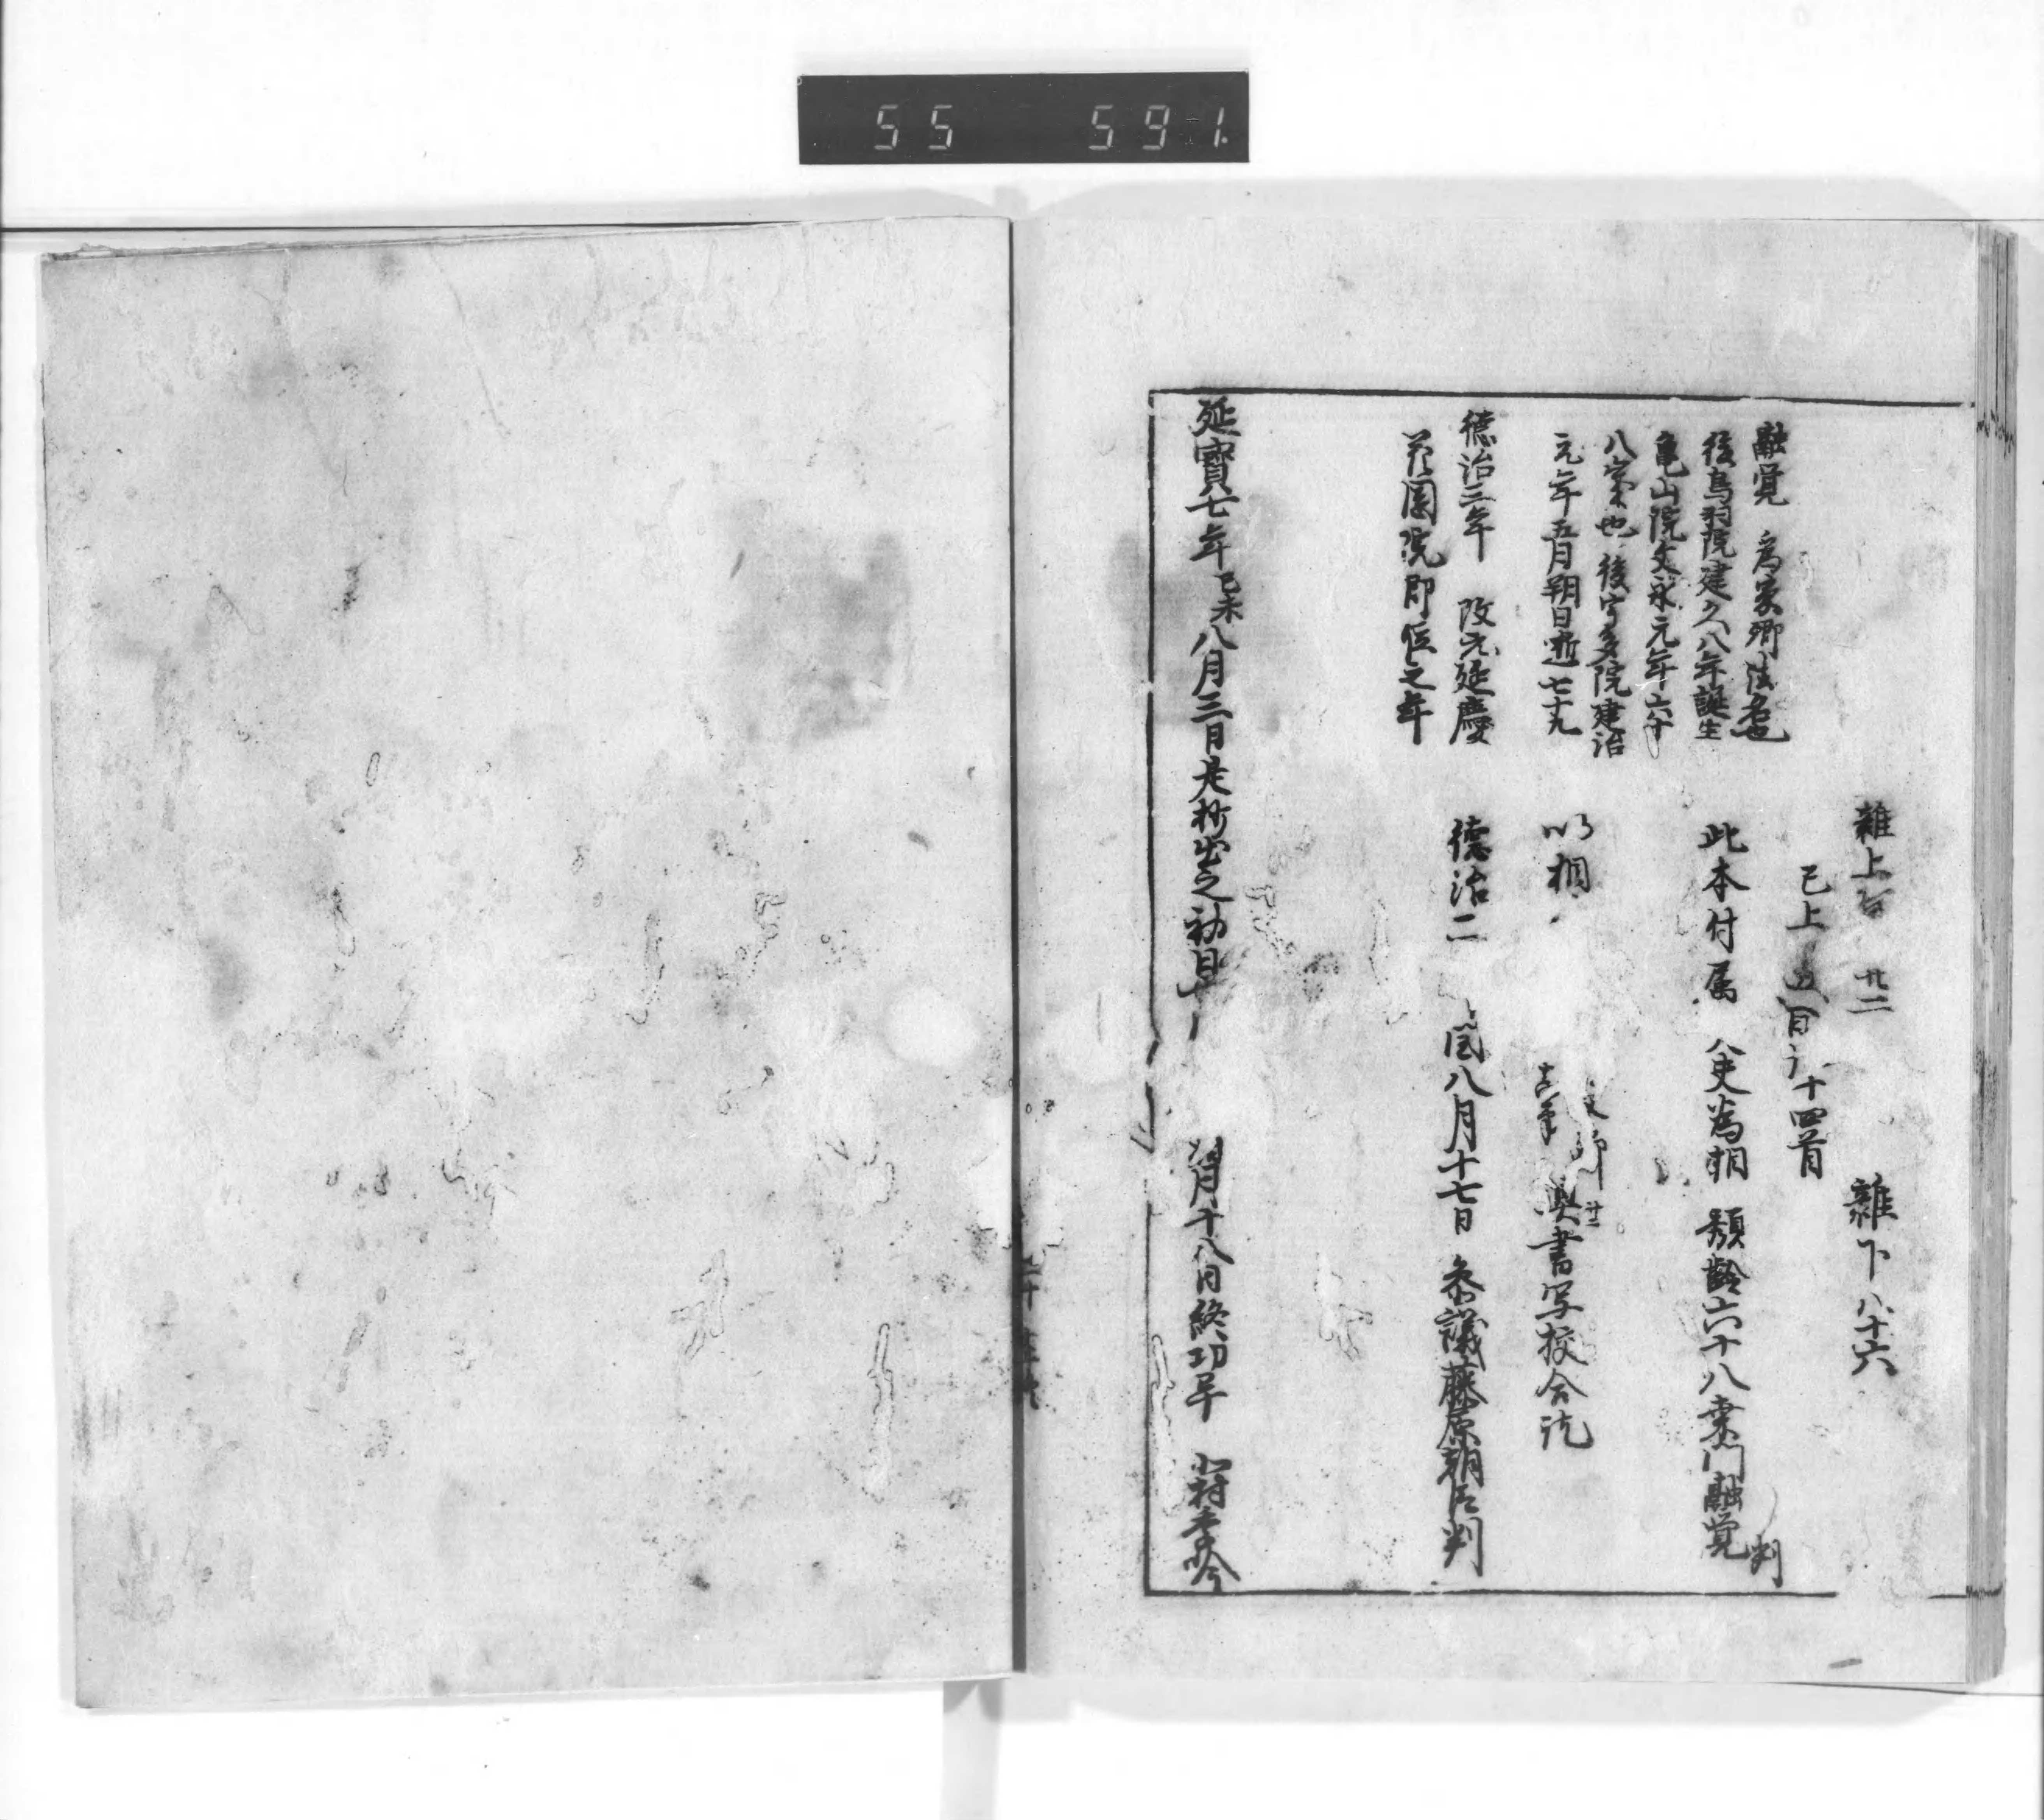 55 591
雑上 廿二 雑下 八十六
已上 十四首
融覚 為家卿法名也
後鳥羽院建久八年誕生
亀山院文永元年六十
八歳也 後宇多院建治
元年五月朔日逝七十九
此本付属 大夫為相 頽齢六十八桑門融覚 判
以相
奥書写校合訖
徳治三年 改元延慶
花園院即位之年
徳治二 閏八月十七日 参議藤原朝臣判
延寶七年己未八月三日是抄出之初日
月十八日終功畢 北村季吟